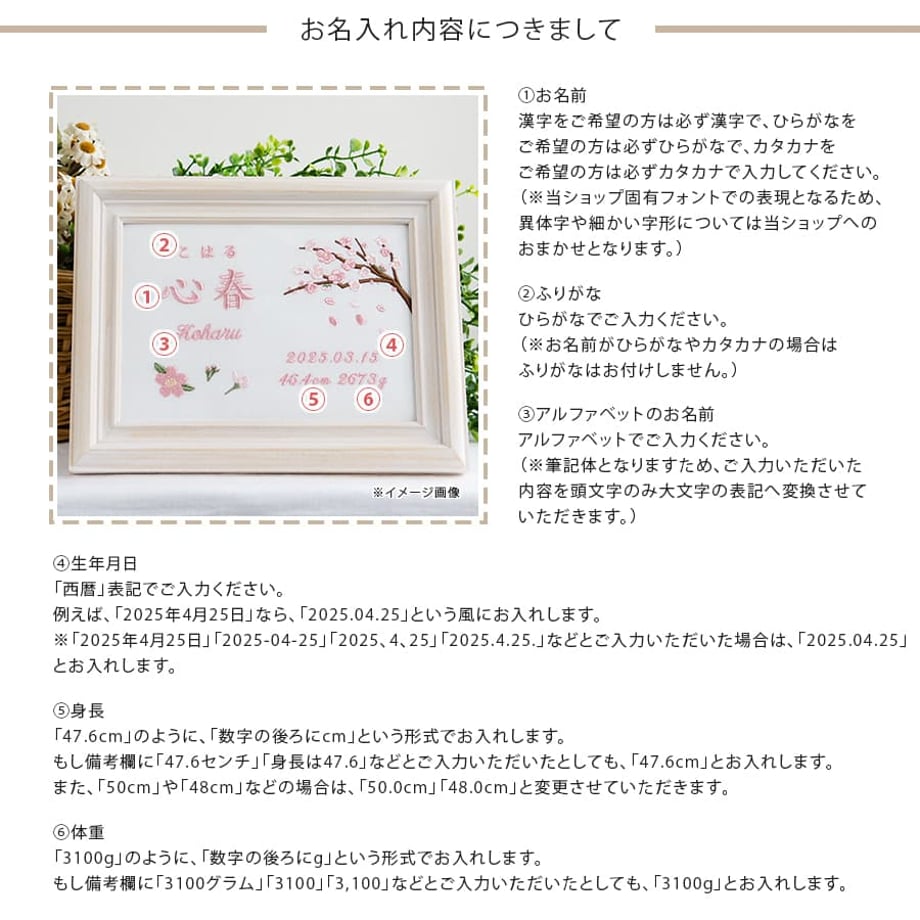 お名入れ内容につきまして
②
こはる
①
心春
③
Koharu
④
2025.03.15
46.4cm 2673g
⑤ ⑥
※イメージ画像
①お名前
漢字をご希望の方は必ず漢字で、ひらがなを
ご希望の方は必ずひらがなで、カタカナを
ご希望の方は必ずカタカナで入力してください。
(※当ショップ固有フォントでの表現となるため、
異体字や細かい字形については当ショップへの
おまかせとなります。)
②ふりがな
ひらがなでご入力ください。
(※お名前がひらがなやカタカナの場合は
ふりがなはお付けしません。)
③アルファベットのお名前
アルファベットでご入力ください。
(※筆記体となりますため、ご入力いただいた
内容を頭文字のみ大文字の表記へ変換させて
いただきます。)
④生年月日
「西暦」表記でご入力ください。
例えば、「2025年4月25日」なら、「2025.04.25」という風にお入れします。
※「2025年4月25日」「2025-04-25」「2025、4、25」「2025.4.25.」などとご入力いただいた場合は、「2025.04.25」
とお入れします。
⑤身長
「47.6cm」のように、「数字の後ろにcm」という形式でお入れします。
もし備考欄に「47.6センチ」「身長は47.6」などとご入力いただいたとしても、「47.6cm」とお入れします。
また、「50cm」や「48cm」などの場合は、「50.0cm」「48.0cm」と変更させていただきます。
⑥体重
「3100g」のように、「数字の後ろにg」という形式でお入れします。
もし備考欄に「3100グラム」「3100」「3,100」などとご入力いただいたとしても、「3100g」とお入れします。